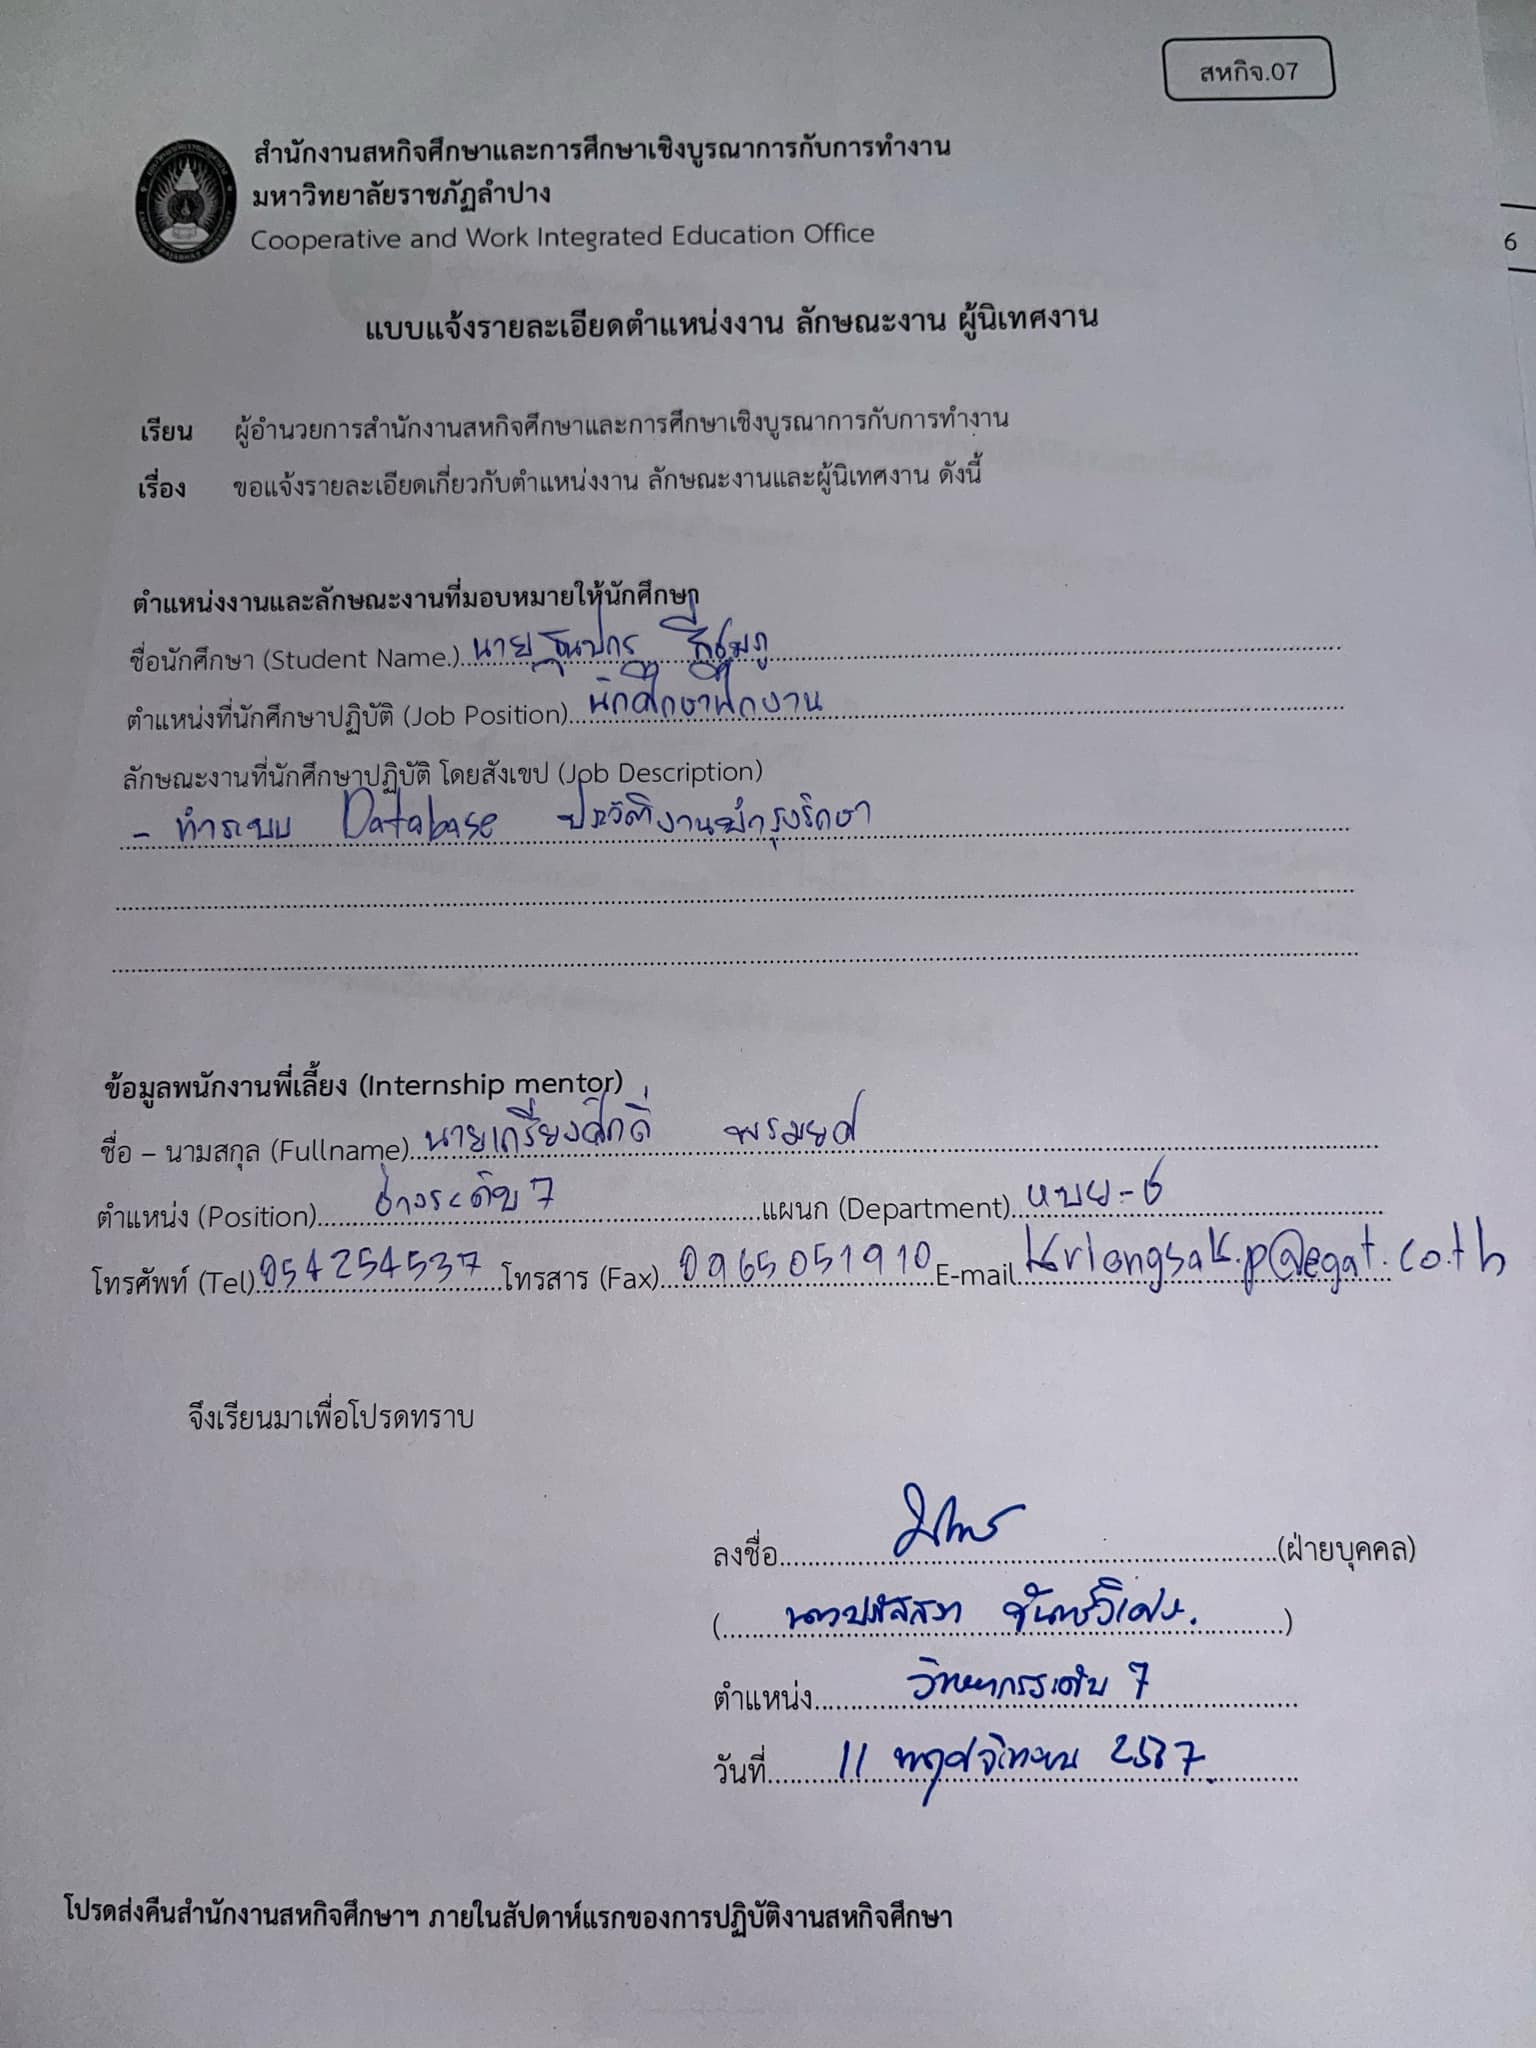 สหกิจ.07
สำนักงานสหกิจศึกษาและการศึกษาเชิงบูรณาการกับการทำงาน
มหาวิทยาลัยราชภัฏลำปาง
Cooperative and Work Integrated Education Office
6
แบบแจ้งรายละเอียดตำแหน่งงาน ลักษณะงาน ผู้นิเทศงาน
เรียน ผู้อำนวยการสำนักงานสหกิจศึกษาและการศึกษาเชิงบูรณาการกับการทำงาน
เรื่อง ขอแจ้งรายละเอียดเกี่ยวกับตำแหน่งงาน ลักษณะงานและผู้นิเทศงาน ดังนี้
ตำแหน่งงานและลักษณะงานที่มอบหมายให้นักศึกษา
ชื่อนักศึกษา (Student Name.) นาย
ตำแหน่งที่นักศึกษาปฏิบัติ (Job Position) นักศึกษาฝึกงาน
ลักษณะงานที่นักศึกษาปฏิบัติ โดยสังเขป (Job Description)
- ทำระบบ Database ประวัติงานบำรุงรักษา
ข้อมูลพนักงานพี่เลี้ยง (Internship mentor)
ชื่อ – นามสกุล (Fullname) นายเกรียงศักดิ์ พรมยศ
ตำแหน่ง (Position) ช่างระดับ 7 แผนก (Department)
โทรศัพท์ (Tel) 054254537 โทรสาร (Fax) 0965051910 E-mail kriangsak.p@egat.co.th
จึงเรียนมาเพื่อโปรดทราบ
ลงชื่อ (ฝ่ายบุคคล)
ตำแหน่ง วิทยากรระดับ 7
วันที่ 11 พฤศจิกายน 2567
โปรดส่งคืนสำนักงานสหกิจศึกษาฯ ภายในสัปดาห์แรกของการปฏิบัติงานสหกิจศึกษา